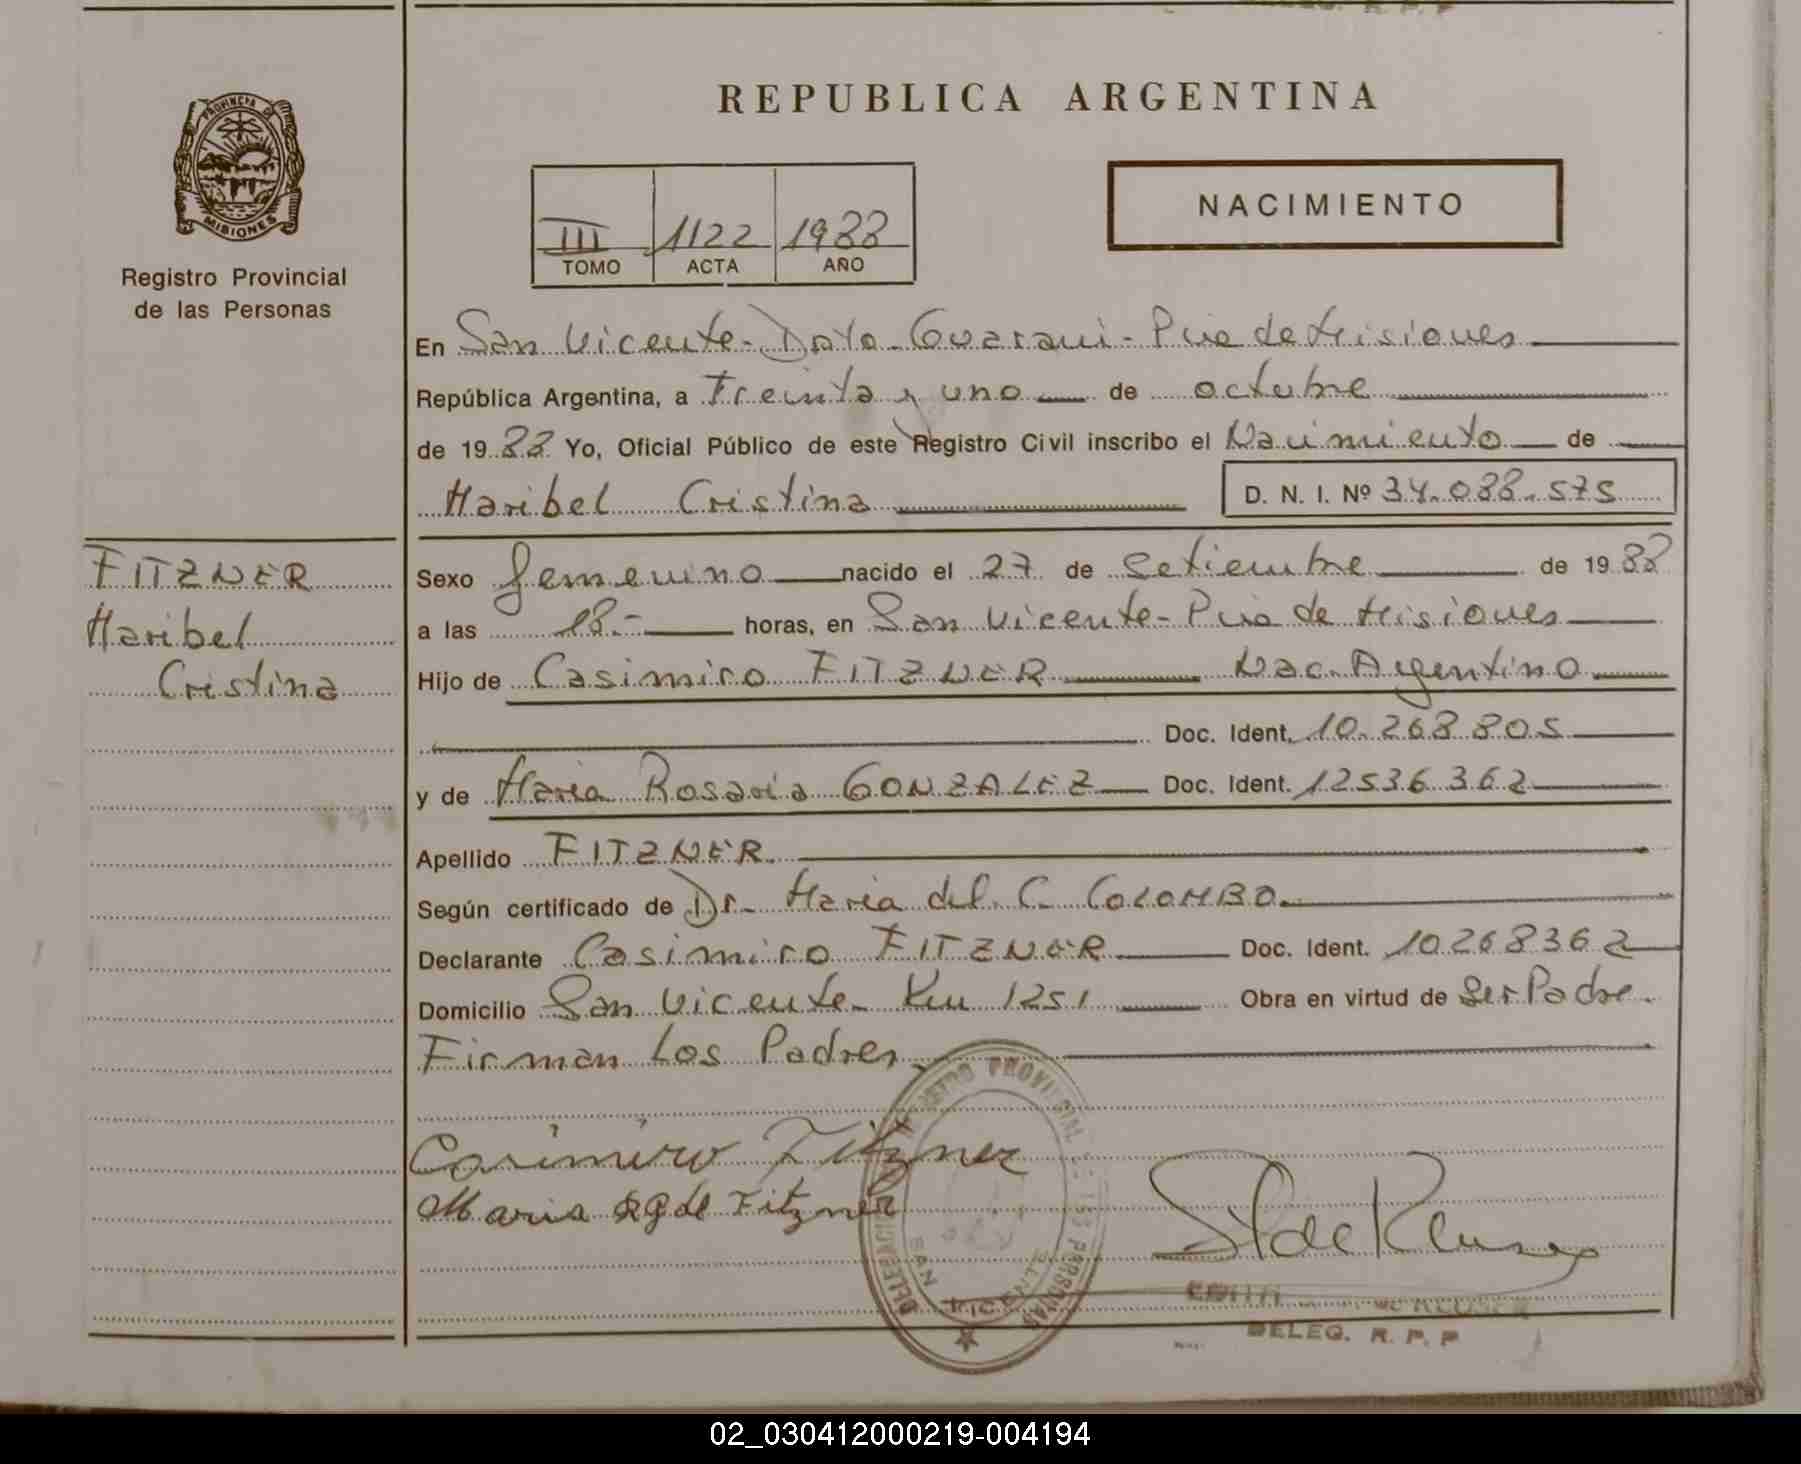 DELEG. R. P. P
PROVINCIA DE
MISIONES
Registro Provincial
de las Personas
REPUBLICA ARGENTINA
III 1122 1988
TOMO ACTA AÑO
NACIMIENTO
En San Vicente - Dpto. Guarani - Pcia de Misiones
República Argentina, a Treinta y uno de octubre
de 1988 Yo, Oficial Público de este Registro Civil inscribo el Nacimiento de
Maribel Cristina D. N. I. Nº 34.088.575
FITZNER
Maribel
Cristina
Sexo femenino nacido el 27 de Setiembre de 1988
a las 18.- horas, en San Vicente - Pcia de Misiones
Hijo de Casimiro FITZNER Nac. Argentino
Doc. Ident. 10.268.805
y de Maria Rosaria GONZALEZ Doc. Ident. 12536.362
Apellido FITZNER.
Según certificado de Dr. Maria del C. COLOMBO.
Declarante Casimiro FITZNER Doc. Ident. 10268362
Domicilio San Vicente - Km 1251 Obra en virtud de Ser Padre.
Firman Los Padres.
Casimiro Fitzner
Maria R G de Fitzner
DELEGACION REGISTRO PROVINCIAL DE LAS PERSONAS
SAN VICENTE
DELEG. R. P. P
02_030412000219-004194